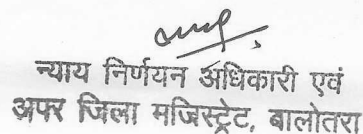 न्याय निर्णयन अधिकारी एवं
अपर जिला मजिस्ट्रेट, बालोतरा